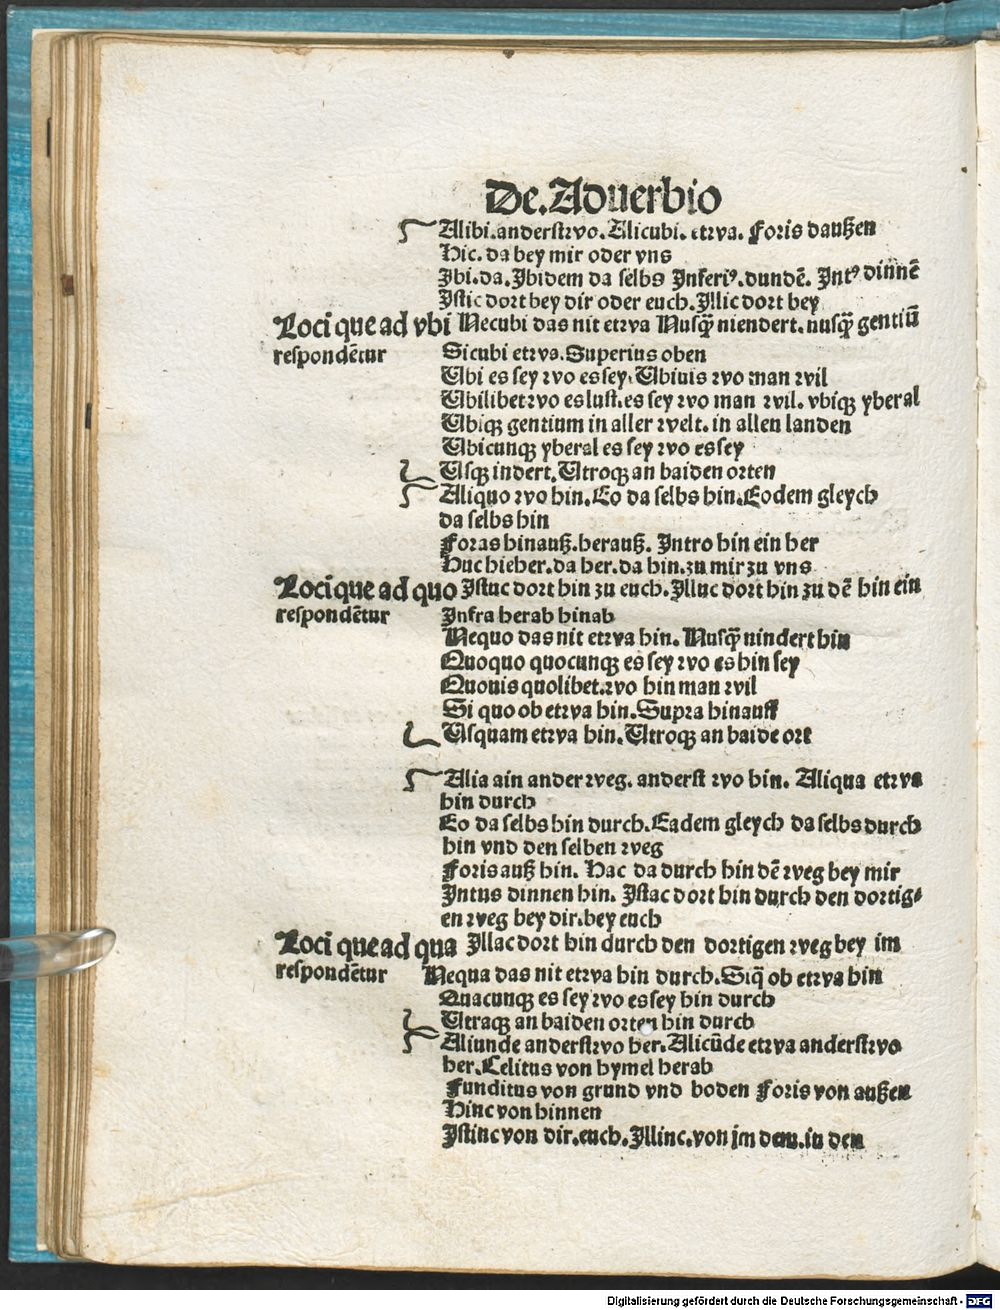 De.Aduerbio
Alibi.anderstwo.Alicubi.etwa. Foris daußen
Hic.da bey mir oder vns
Ibi.da.Ibidem da selbs Inferiꝰ.dundē. Intꝰ dinnē
Istic dort bey dir oder euch.Illic dort bey
Loci que ad vbi Necubi das nit etwa Nusq̄ niendert.nusq̄ gentiū
respondētur Sicubi etwa.Superius oben
Ubi es sey wo es sey.Ubiuis wo man wil
Ubilibet wo es lust.es sey wo man wil.vbiqꝫ yberal
Ubiqꝫ gentium in aller welt.in allen landen
Ubicunqꝫ yberal es sey wo es sey
Usqꝫ indert.Utroqꝫ an baiden orten
Aliquo wo hin.Eo da selbs hin.Eodem gleych
da selbs hin
Foras hinauß.herauß. Intro hin ein her
Huc hieher.da her.da hin.zu mir zu vns
Loci que ad quo Istuc dort hin zu euch.Illuc dort hin zu dē hin ein
respondētur Infra herab hinab
Nequo das nit etwa hin.Nusq̄ nindert hin
Quoquo quocunqꝫ es sey wo es hin sey
Quouis quolibet.wo hin man wil
Si quo ob etwa hin.Supra hinauff
Usquam etwa hin.Utroqꝫ an baide ort
Alia ain ander weg. anderst wo hin. Aliqua etwa
hin durch
Eo da selbs hin durch.Eadem gleych da selbs durch
hin vnd den selben weg
Foris auß hin. Hac da durch hin dē weg bey mir
Intus dinnen hin. Istac dort hin durch den dortig⸗
en weg bey dir.bey euch
Loci que ad qua Illac dort hin durch den dortigen weg bey im
respondētur Nequa das nit etwa hin durch.Siq̄ ob etwa hin
Quacunqꝫ es sey wo es sey hin durch
Utraqꝫ an baiden orten hin durch
Aliunde anderstwo her.Alicūde etwa anderstwo
her.Celitus von hymel herab
Funditus von grund vnd boden Foris von außen
Hinc von hinnen
Istinc von dir.euch.Illinc.von jm dem.in den
Digitalisierung gefördert durch die Deutsche Forschungsgemeinschaft - DFG